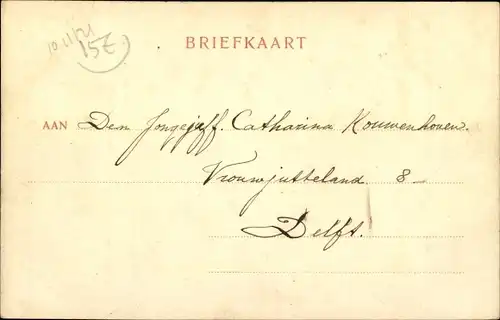 10.11/21
15€
BRIEFKAART
AAN Den Jongejuff. Catharina Kouwenhoven.
Vrouwjutteland 8 –
Delft.